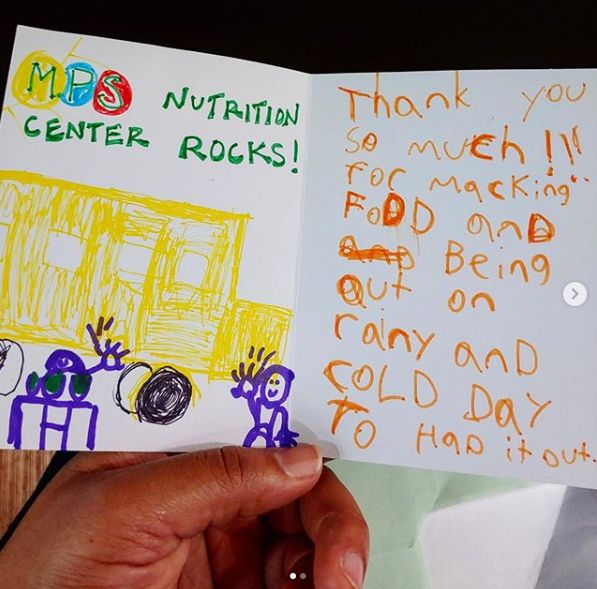 MPS NUTRITION
CENTER ROCKS!
Thank you
so much !!!
For Macking
FoDD anD
Being
Out on
rainy anD
COLD DaY
To HaD it out.